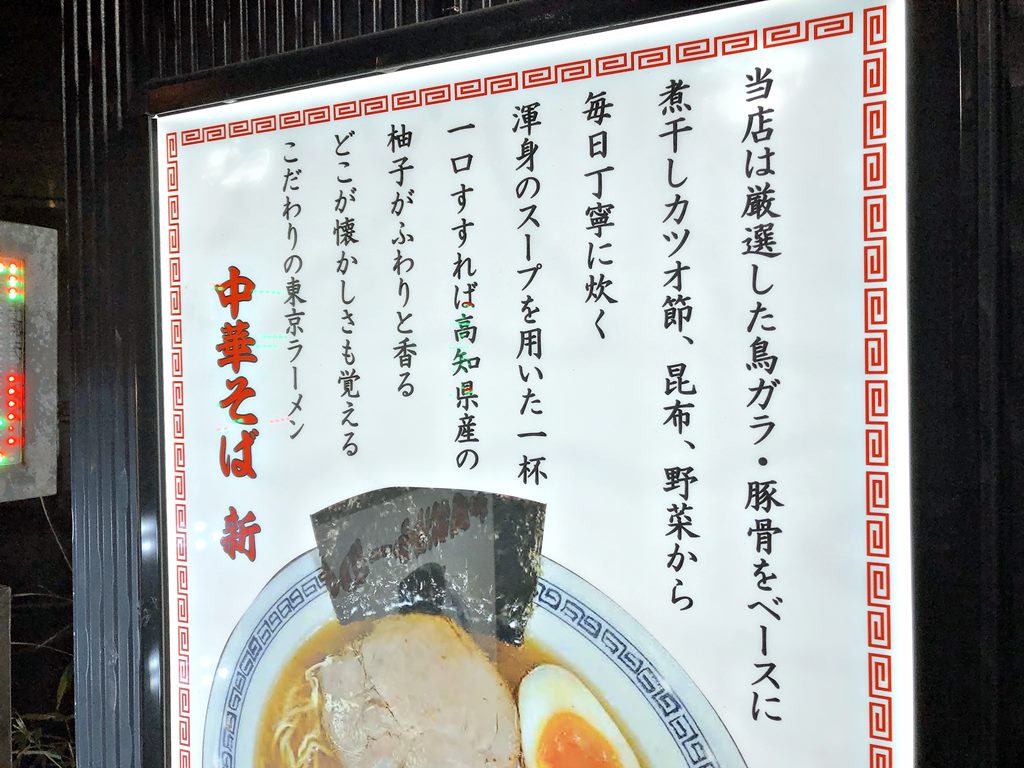 当店は厳選した鳥ガラ・豚骨をベースに
煮干しカツオ節、昆布、野菜から
毎日丁寧に炊く
渾身のスープを用いた一杯
一口すすれば高知県産の
柚子がふわりと香る
どこが懐かしさも覚える
こだわりの東京ラーメン
中華そば 新